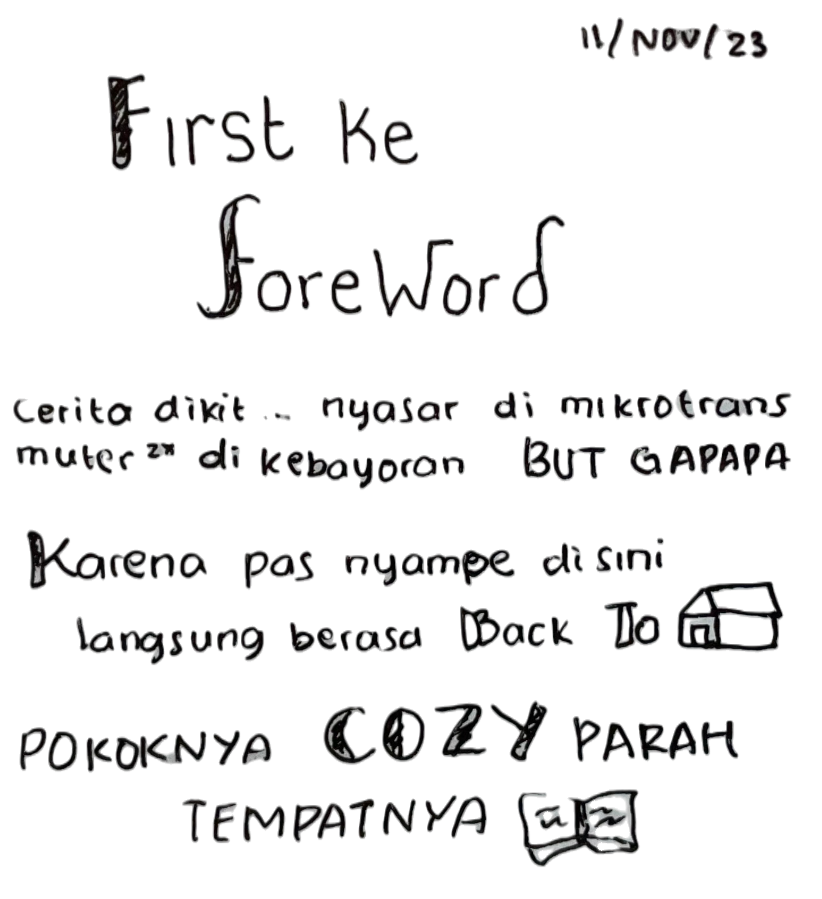 11/NOV/23
First ke
foreWord
cerita dikit .. nyasar di mikrotrans
muter 2x di kebayoran BUT GAPAPA
Karena pas nyampe disini
langsung berasa Back To
POKOKNYA COZY PARAH
TEMPATNYA